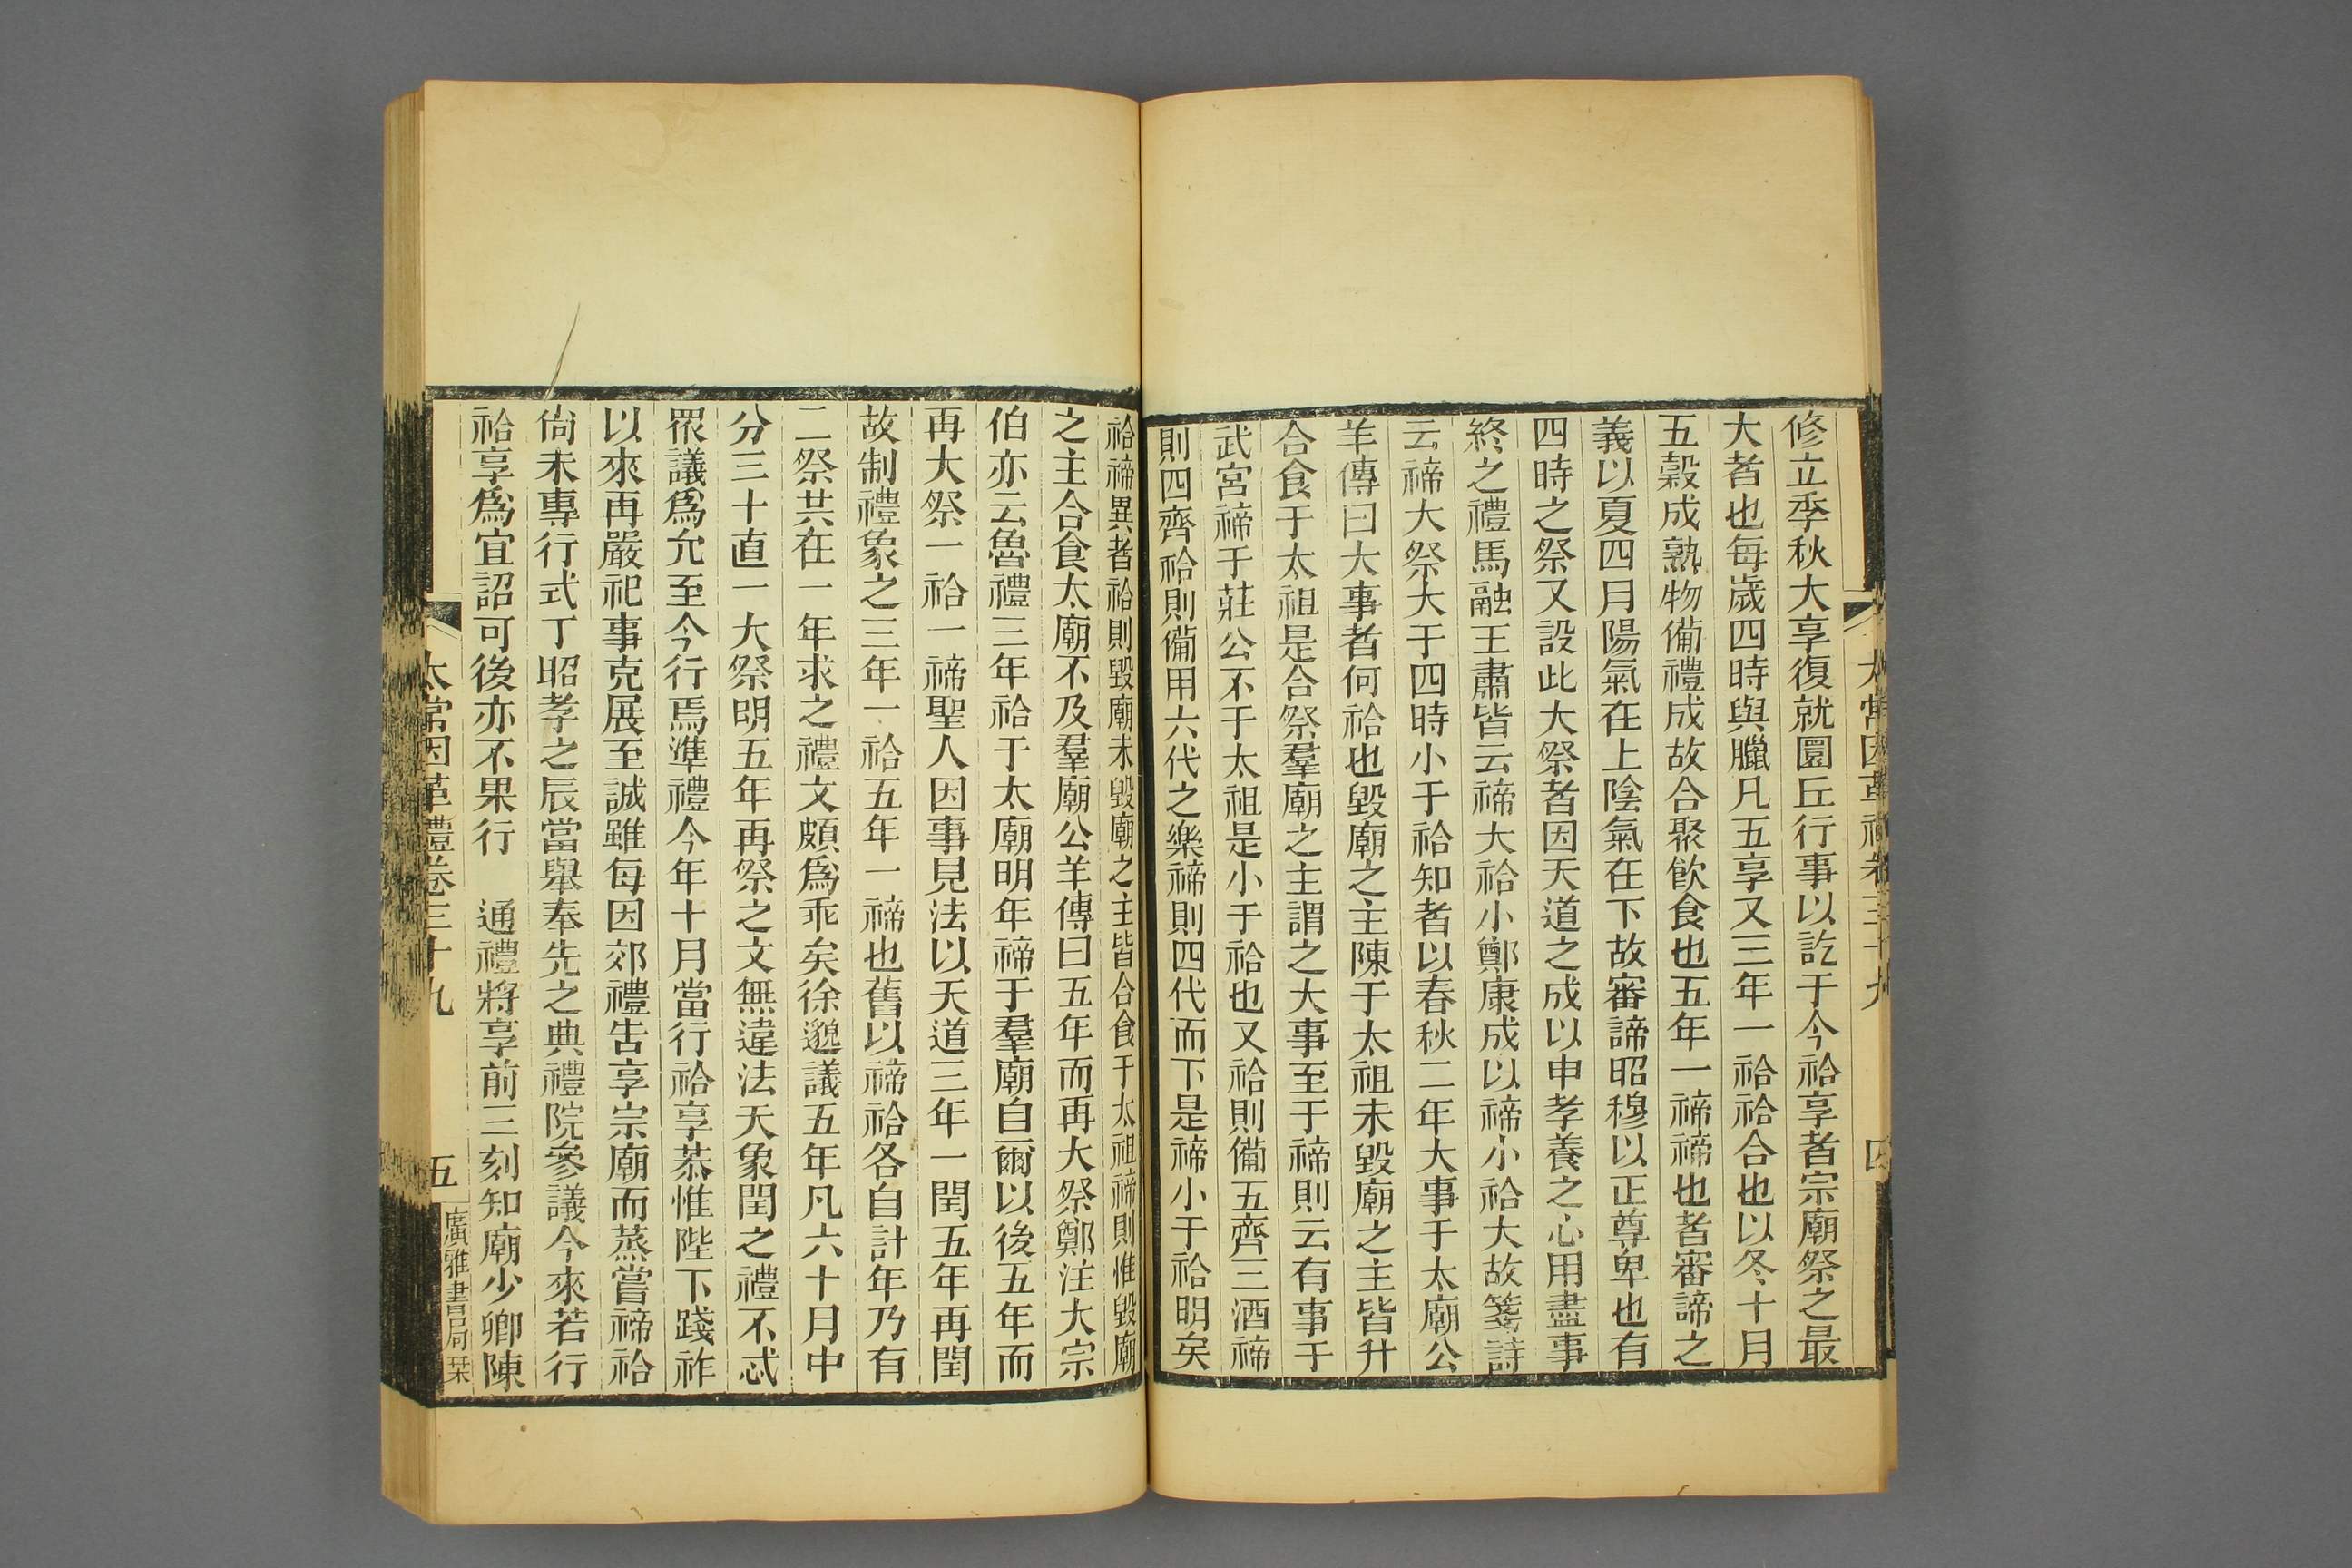 修立季秋大享復就圜丘行事以訖于今祫享者宗廟祭之最
大者也每歲四時與臘凡五享又三年一祫祫合也以冬十月
五穀成熟物備禮成故合聚飲食也五年一禘禘也者審諦之
義以夏四月陽氣在上陰氣在下故審諦昭穆以正尊卑也有
四時之祭又設此大祭者因天道之成以申孝養之心用盡事
終之禮馬融王肅皆云禘大祫小鄭康成以禘小祫大故箋詩
云禘大祭大于四時小于祫知者以春秋二年大事于太廟公
羊傳曰大事者何祫也毀廟之主陳于太祖未毀廟之主皆升
合食于太祖是合祭羣廟之主謂之大事至于禘則云有事于
武宮禘于莊公不于太祖是小于祫也又祫則備五齊三酒禘
則四齊祫則備用六代之樂禘則四代而下是禘小于祫明矣
太常因革禮卷三十九
四
祫禘異者祫則毀廟未毀廟之主皆合食于太祖禘則惟毀廟
之主合食太廟不及羣廟公羊傳曰五年而再大祭鄭注大宗
伯亦云魯禮三年祫于太廟明年禘于羣廟自爾以後五年而
再大祭一祫一禘聖人因事見法以天道三年一閏五年再閏
故制禮象之三年一祫五年一禘也舊以禘祫各自計年乃有
二祭共在一年求之禮文頗爲乖矣徐邈議五年凡六十月中
分三十直一大祭明五年再祭之文無違法天象閏之禮不忒
眾議爲允至今行焉準禮今年十月當行祫享恭惟陛下踐祚
以來再嚴祀事克展至誠雖每因郊禮告享宗廟而蒸嘗禘祫
尙未專行式丁昭孝之辰當舉奉先之典禮院參議今來若行
祫享爲宜詔可後亦不果行　通禮將享前三刻知廟少卿陳
太常因革禮卷三十九
五
廣雅書局栞